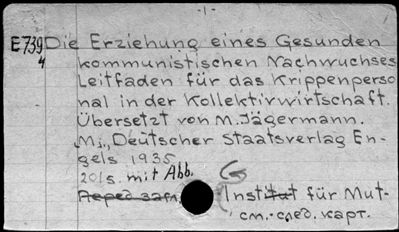 -1-
E739 Die Erziehung eines Gesunden
4 kommunistischen Nachwuchses
Leitfaden für das Krippenperso
nal in der Kollektivwirtschaft.
Übersetzt von M. Jägermann.
M., Deutscher Staatsverlag En-
gels 1935
201 s. mit Abb.
Перед загл. Institut für Mut-
см. след. карт.